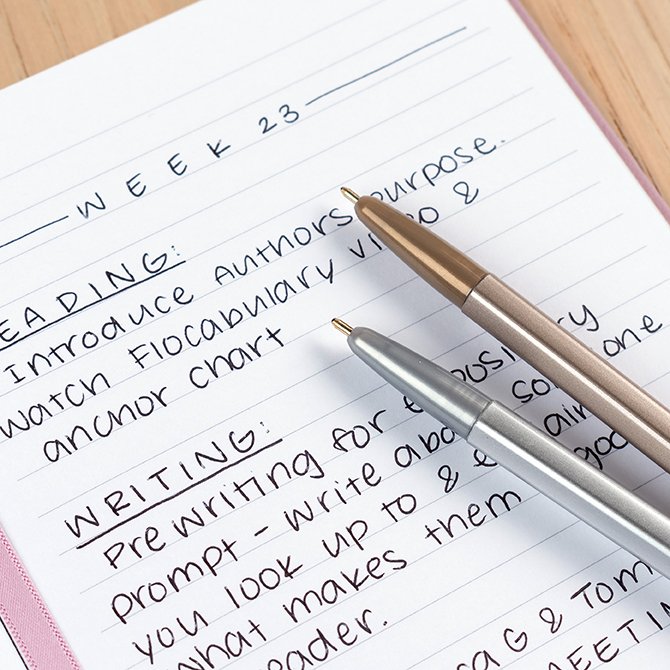 WEEK 23
READING:
Introduce Authors purpose.
watch Flocabulary video &
anchor chart
WRITING:
Prewriting for expository
prompt - write about someone
you look up to &
what makes them good
leader.
G & Tom
MEETIN